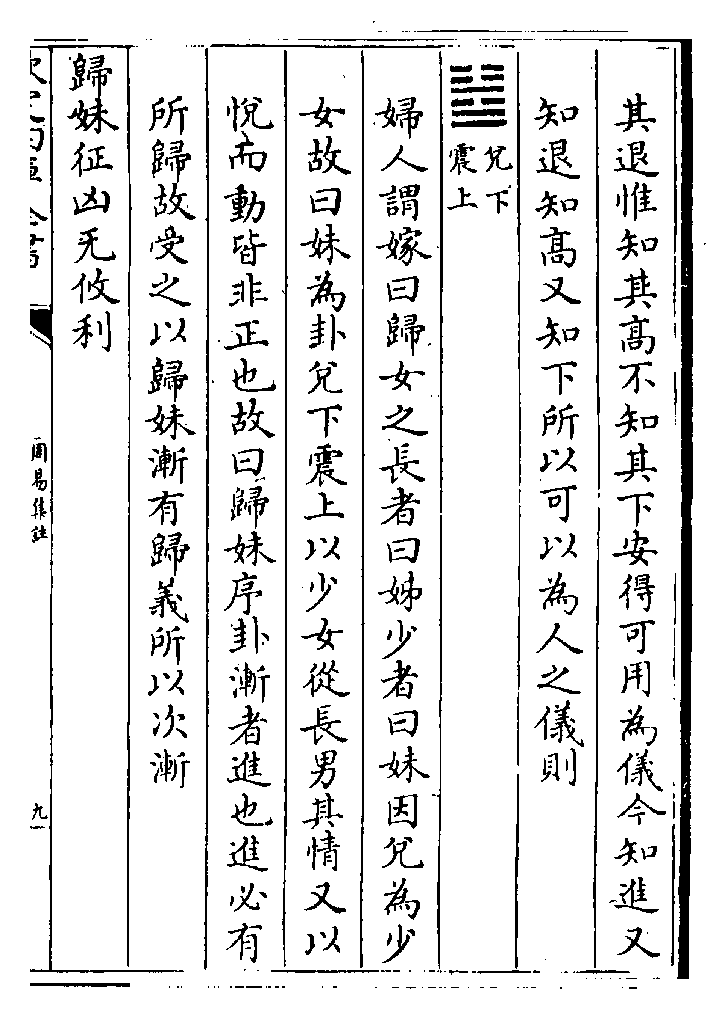 其退惟知其高不知其下安得可用為儀今知進又
知退知高又知下所以可以為人之儀則
兌下
震上
婦人謂嫁曰歸女之長者曰姊少者曰妹因兌為少
女故曰妹為卦兌下震上以少女從長男其情又以
悅而動皆非正也故曰歸妹序卦漸者進也進必有
所歸故受之以歸妹漸有歸義所以次漸
歸妹征凶无攸利
周易集註
九